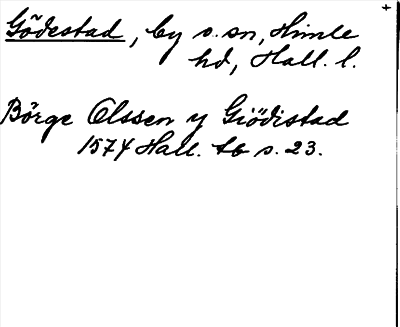 Gödestad, by o. sn, Himle
hd, Hall. l.
Börge Olssen y Giödistad
1574 Hall. tb s. 23.